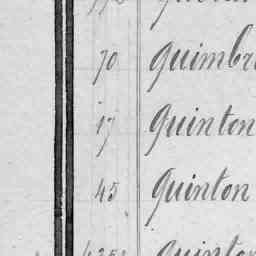 70 Quimbr
17 Quinton
45 Quinton
Quinton